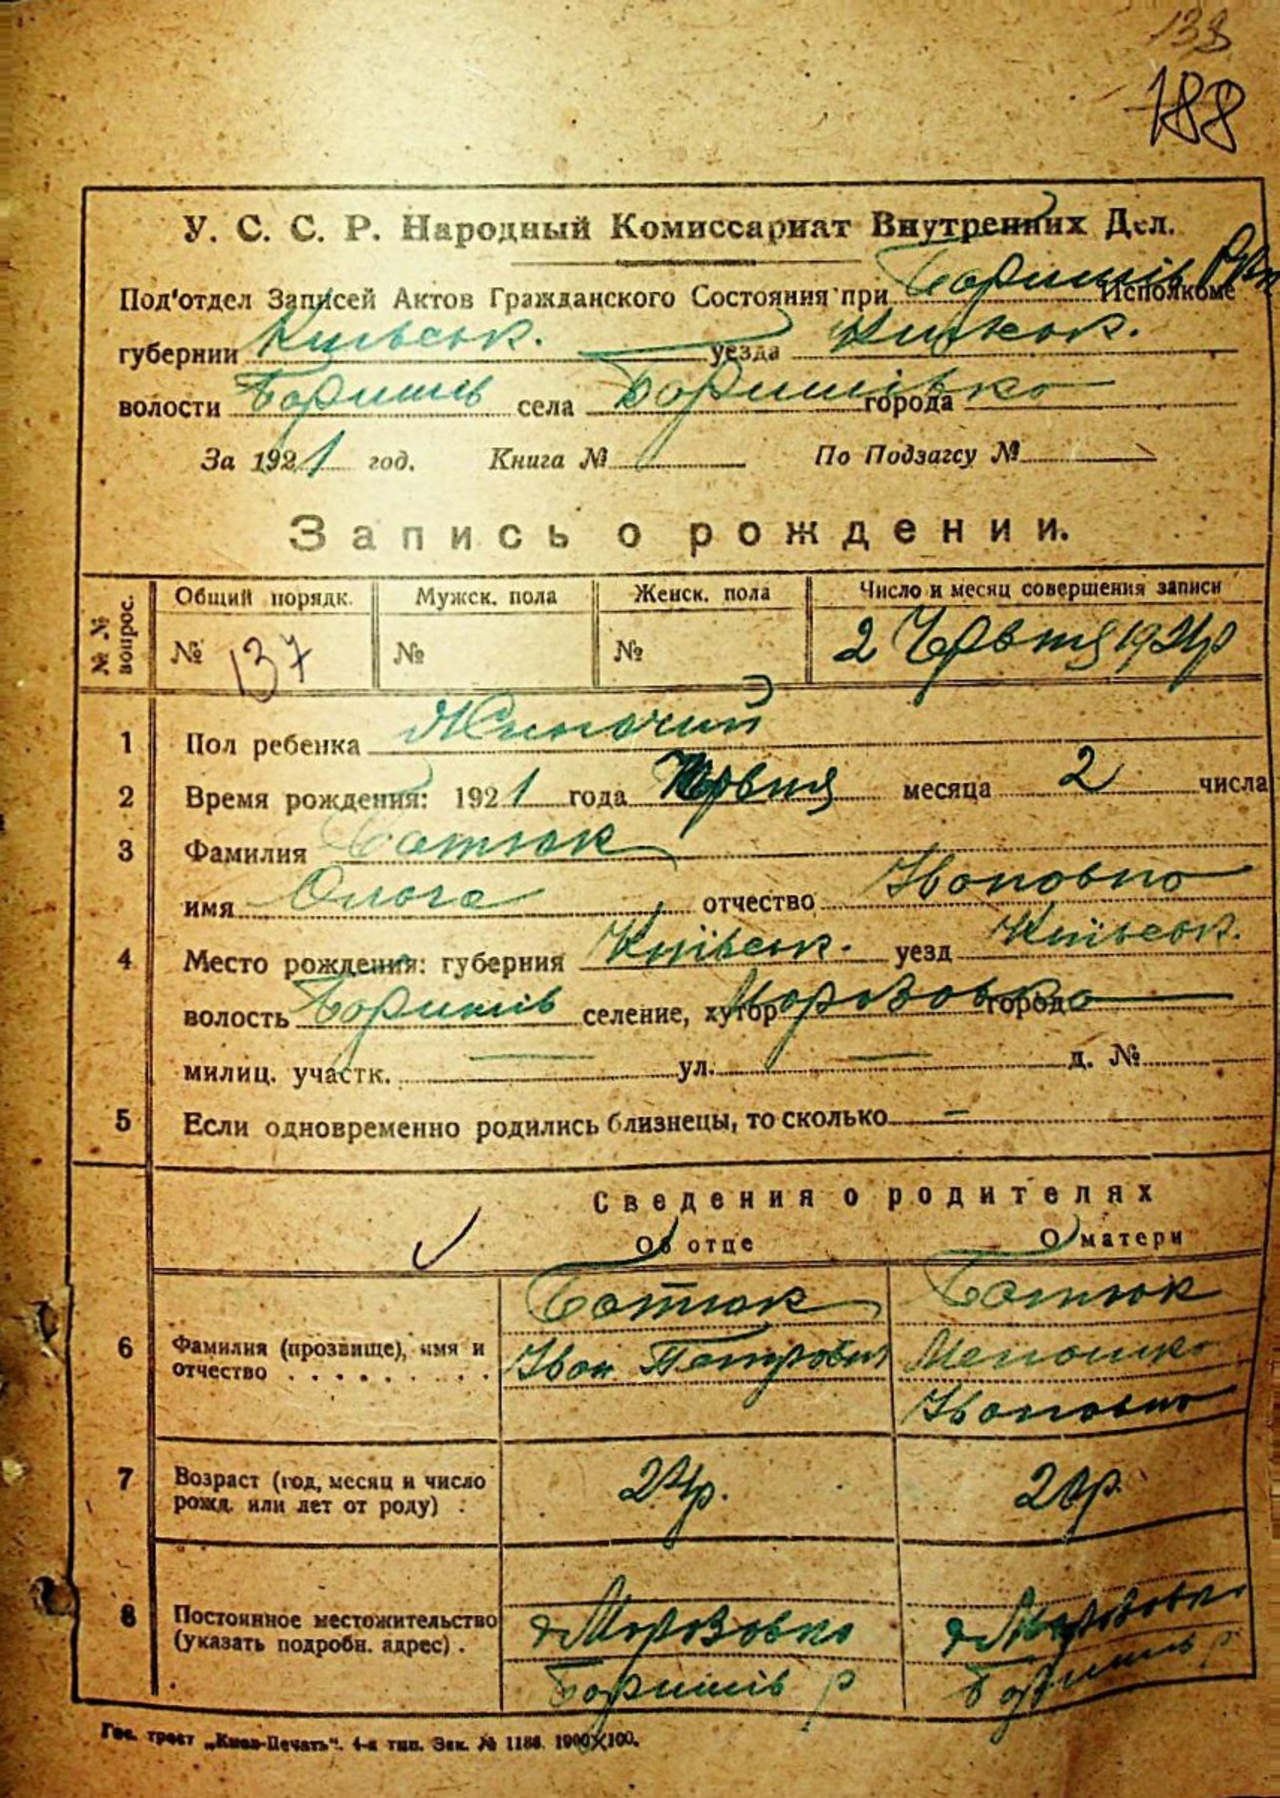 138
188
У. С. С. Р. Народный Комиссариат Внутренних Дел.
Под'отдел Записей Актов Гражданского Состояния при Баришів Исполкоме
губернии Київськ. уезда Київськ.
волости Баришів села Баришівка города
За 1921 год. Книга № По Подзагсу №
Запись о рождении.
№ № вопрос. Общий порядк. Мужск. пола Женск. пола Число и месяц совершения записи
№ 137 № № 2 Червня 1921р
1 Пол ребенка Жиночий
2 Время рождения: 1921 года Червня месяца 2 числа
3 Фамилия Батюк
имя Ольга отчество Івановна
4 Место рождения: губерния Київськ. уезд Київськ.
волость Баришів селение, хутор Морозовка города
милиц. участк. — ул. — д. №
5 Если одновременно родились близнецы, то сколько —
Сведения о родителях
Об отце О матери
6 Фамилия (прозвище), имя и отчество Батюк Батюк
Іван Петрович
Івановна
7 Возраст (год, месяц и число рожд. или лет от роду) 24р. 20р.
8 Постоянное местожительство (указать подробн. адрес) Морозовка Морозовка
Баришів р Баришів р
Гос. трест „Киев-Печать". 4-я тип. Зак. № 1186. 1900×100.